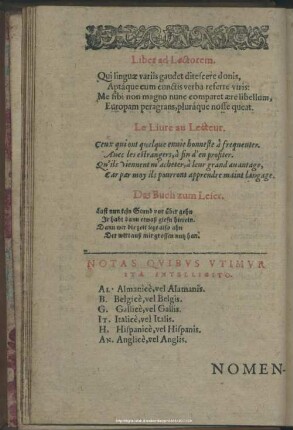 Liber ad Lectorem.
Qui linguæ variis gaudet ditescere donis,
Aptáque cum cunctis verba referre viris:
Me sibi non magno nunc comparet ære libellum,
Europam peragrans, pluráque nosse queat.
Le Liure au Lecteur.
Ceux qui ont quelque enuie honneste à frequenter
Auec les estrangers, à fin d'en profiter.
Qu'ilz viennent m'achetter, à leur grand auantage,
Car par moy ilz pourront apprendre maint langage.
Das Buch zum Leser.
Last nun kein Stand vor über gehn
Er habt dann etwas hierin
Dann wer die zeit also
Der wirt auß mir grossen nutz han.
NOTAS QVIBVS VTIMVR
ITA INTELLIGITO.
AL. Almanicè, vel Alamanis.
B. Belgicè, vel Belgis.
G. Gallicè, vel Gallis.
IT. Italicè, vel Italis.
H. Hispanicè, vel Hispanis.
AN. Anglicè, vel Anglis.
NOMEN-